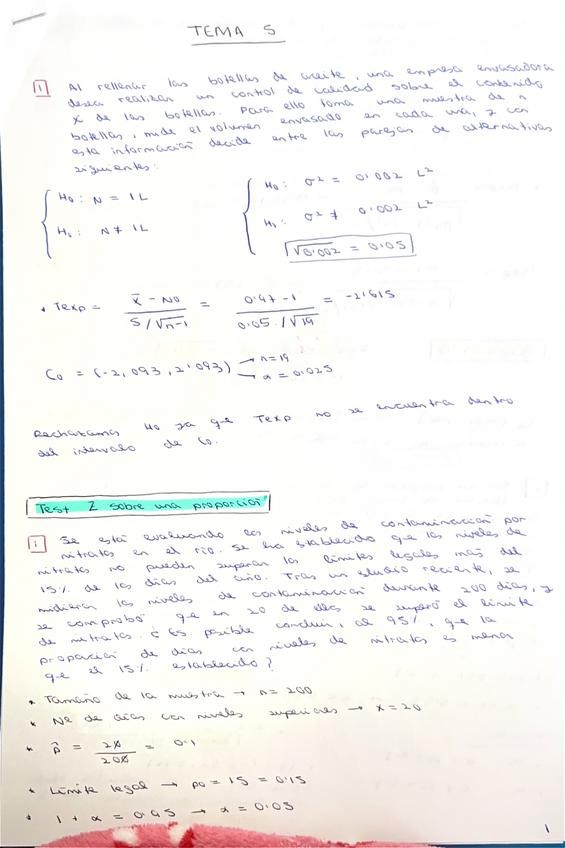 TEMA 5
1 Al rellenar las botellas de aceite, una empresa envasadora
desea realizar un control de calidad sobre el contenido
X de las botellas. Para ello toma una muestra de n
botellas, mide el volumen envasado en cada una, y con
esta información decide entre las parejas de alternativas
siguientes:
H0 : N = 1L
H1 : N ≠ 1L
H0 : σ² = 0'002 L²
H1 : σ² ≠ 0.002 L²
√0.002 = 0.05
* Texp = (x̄ - N0) / (S/√n-1) = (0.97 - 1) / (0.05/√19) = -2'615
C0 = (-2,093, 2'093) → n=19
→ α = 0.025
Rechazamos H0 ya que Texp no se encuentra dentro
del intervalo de C0.
Test Z sobre una proporción
1 Se está evaluando los niveles de contaminación por
nitratos en el río. Se ha establecido que los niveles de
nitratos no pueden superar los límites legales más del
15% de los días del año. Tras un estudio reciente, se
midieron los niveles de contaminación durante 200 días, y
se comprobó que en 20 de ellos se superó el límite
de nitratos. ¿Es posible concluir, al 95%, que la
proporción de días con niveles de nitratos es menor
que el 15% establecido?
* Tamaño de la muestra → n = 200
* Nº de días con niveles superiores → x = 20
* p̂ = 20/200 = 0.1
* Límite legal → p0 = 15 = 0.15
* 1 + α = 0.95 → α = 0.05
1